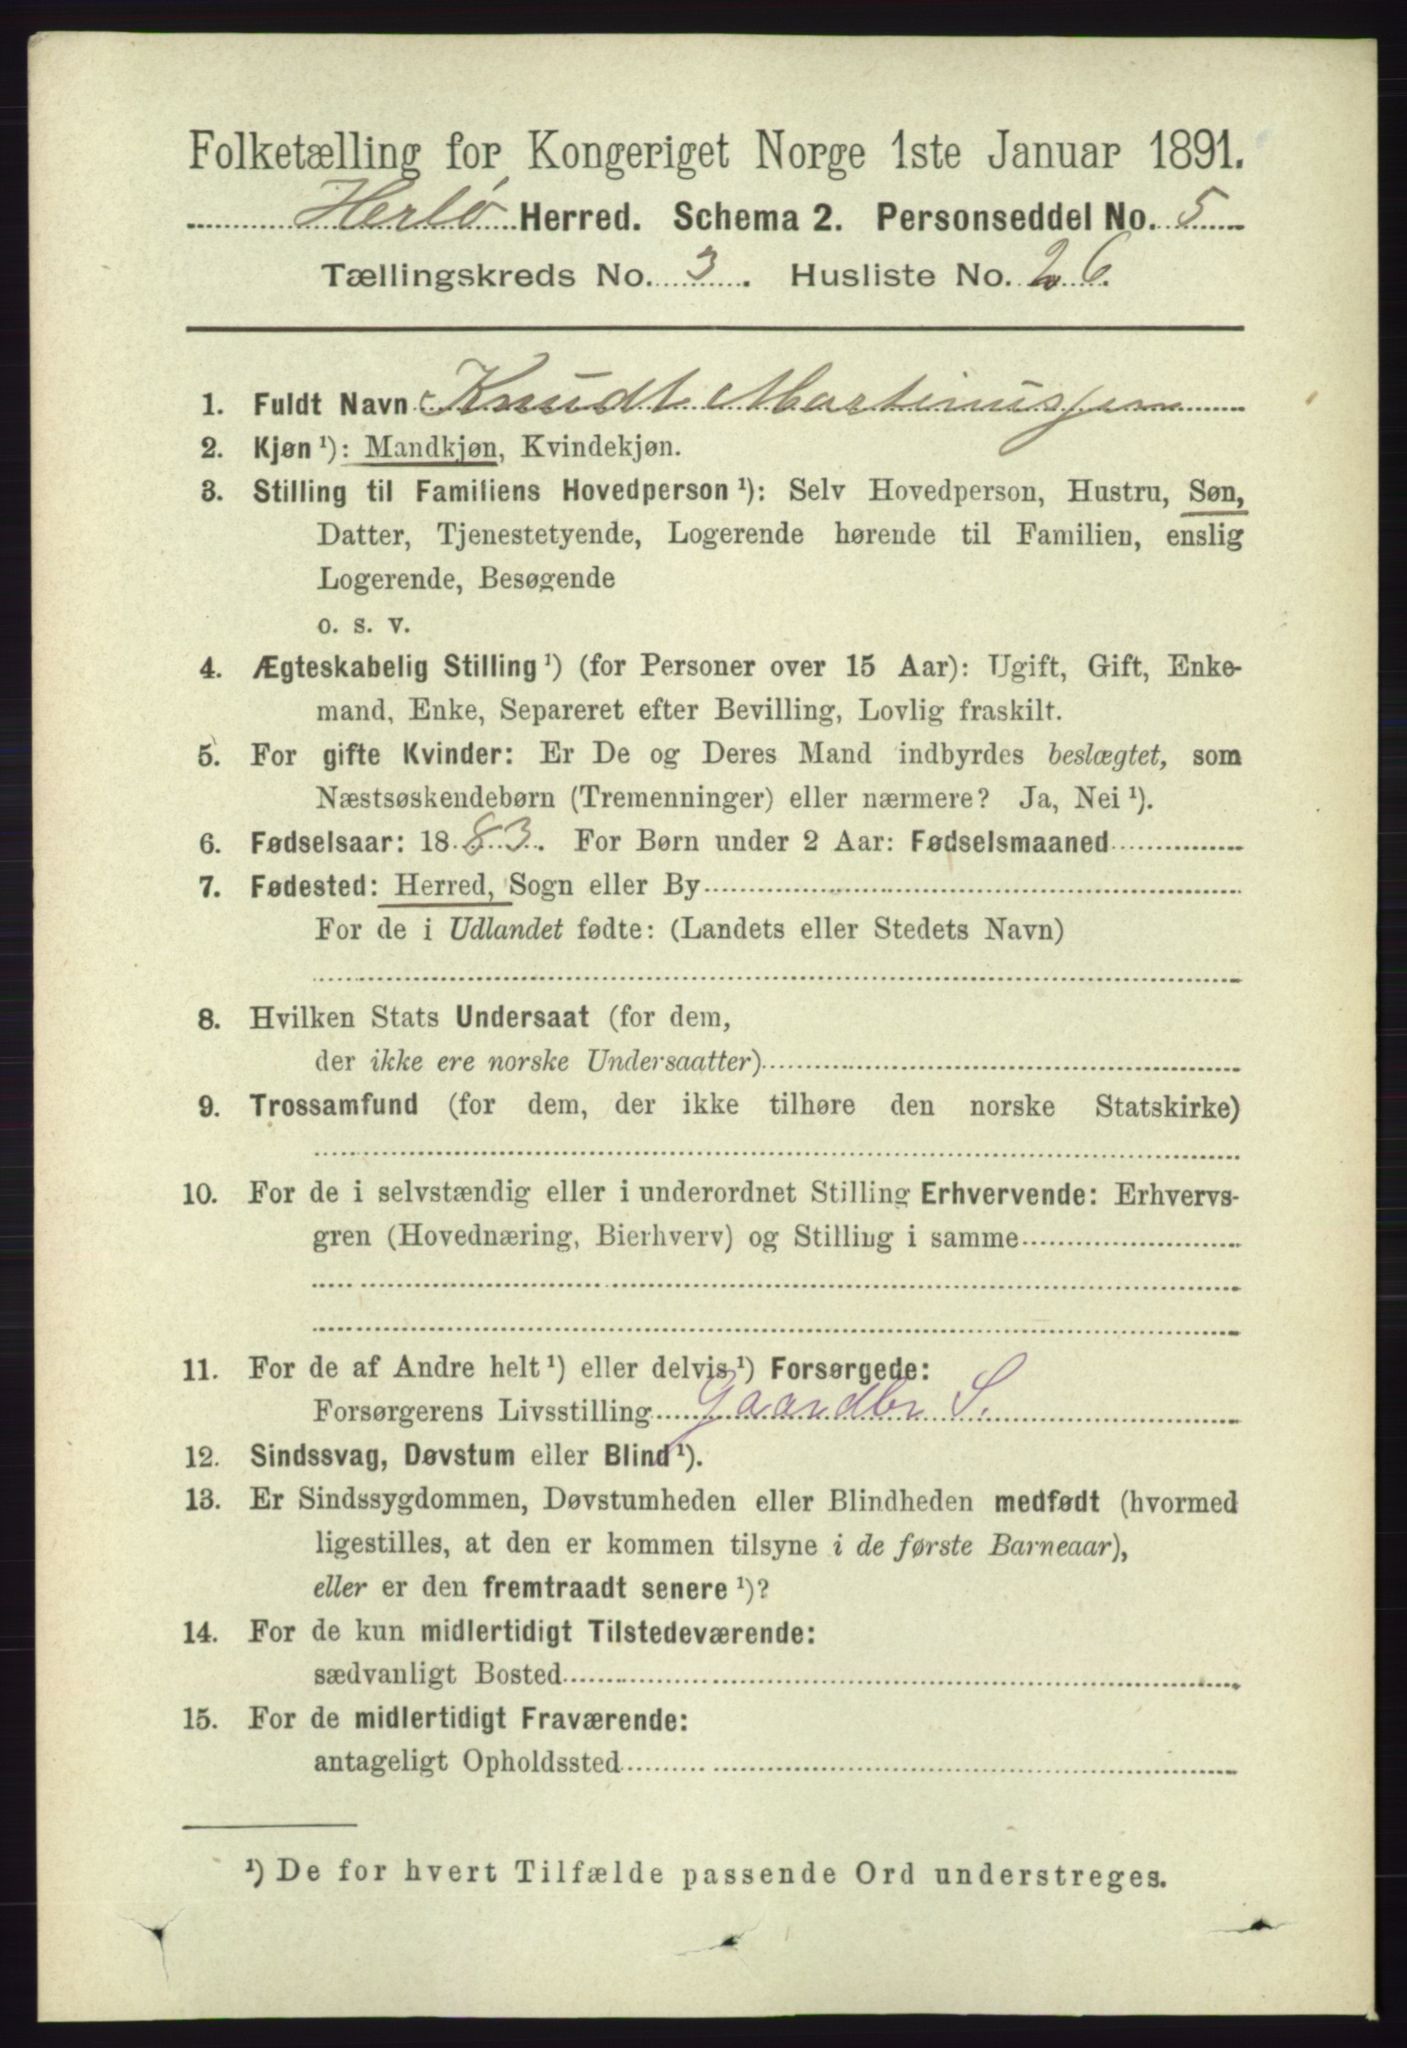 Folketælling for Kongeriget Norge 1ste Januar 1891.
Herlö Herred. Schema 2. Personseddel No. 5
Tællingskreds No. 3. Husliste No. 26
1. Fuldt Navn Knudt Martinussen
2. Kjøn¹): Mandkjøn, Kvindekjøn.
3. Stilling til Familiens Hovedperson¹): Selv Hovedperson, Hustru, Søn,
Datter, Tjenestetyende, Logerende hørende til Familien, enslig
Logerende, Besøgende
o. s. v.
4. Ægteskabelig Stilling¹) (for Personer over 15 Aar): Ugift, Gift, Enke-
mand, Enke, Separeret efter Bevilling, Lovlig fraskilt.
5. For gifte Kvinder: Er De og Deres Mand indbyrdes beslægtet, som
Næstsøskendebørn (Tremenninger) eller nærmere? Ja, Nei¹).
6. Fødselsaar: 1883. For Børn under 2 Aar: Fødselsmaaned
7. Fødested: Herred, Sogn eller By
For de i Udlandet fødte: (Landets eller Stedets Navn)
8. Hvilken Stats Undersaat (for dem,
der ikke ere norske Undersaatter)
9. Trossamfund (for dem, der ikke tilhøre den norske Statskirke)
10. For de i selvstændig eller i underordnet Stilling Erhvervende: Erhvervs-
gren (Hovednæring, Bierhverv) og Stilling i samme
11. For de af Andre helt¹) eller delvis¹) Forsørgede:
Forsørgerens Livsstilling Gaardbr S.
12. Sindssvag, Døvstum eller Blind¹).
13. Er Sindssygdommen, Døvstumheden eller Blindheden medfødt (hvormed
ligestilles, at den er kommen tilsyne i de første Barneaar),
eller er den fremtraadt senere¹)?
14. For de kun midlertidigt Tilstedeværende:
sædvanligt Bosted
15. For de midlertidigt Fraværende:
antageligt Opholdssted
¹) De for hvert Tilfælde passende Ord understreges.